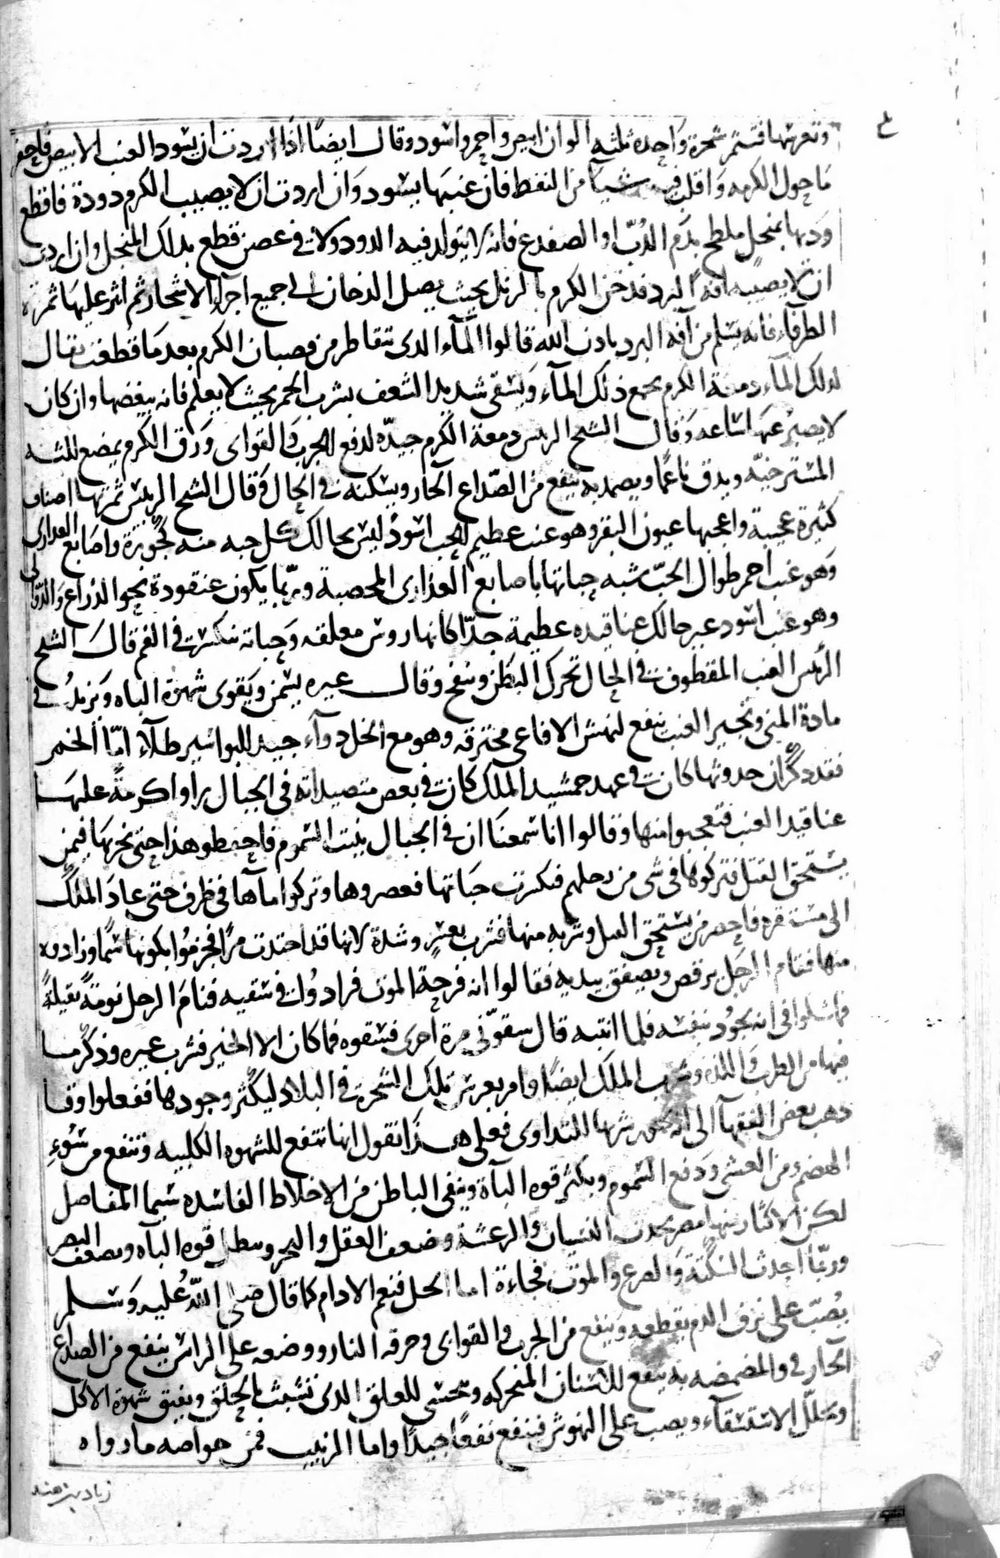 وتغرسها فتثمر شجرة واحدة ثلثة الوان ابيض واحمر واسود وقال ايضًا اذا اردت ان يسود العنب الابيض فاحفر
ما حول الكرمة واقلب فيه شيأ من النفط فان عنبها يسود وان اردت ان لا يصيب الكرم دودة فاقطع
ودنها بمنجل ملطخ بدم الدب او الضفدع فانه لا يتولد فيه الدود ولا في غصن قطع بذلك المنجل وان اردت
ان لا يصيبه آفة البرد فدخن الكرم بالزبل بحيث يصل الدخان الى جميع اجزاء الاشجار ثم انثر عليها ثمرة
الطرفاء فانه يسلم من آفة البرد باذن الله قالوا الماء الذى يتقاطر من قضبان الكرم بعد ما قطفت يقال
لذلك الماء دمعة الكرم يجمع ذلك الماء ويسقى شديد الشعف بشرب الخمر بحيث لا يعلم فانه يبغضها وان كان
لا يصبر عنها ساعة وقال الشيخ الرئيس دمعة الكرم جيدة لدفع الجرب والقوابى ورق الكرم يمضغ للثة
المسترخية ويدق ناعمًا ويضمد به ينفع من الصداع الحار ويسكنه في الحال وقال الشيخ الرئيس ثمرتها اصناف
كثيرة عجيبة واعجبها عيون البقر وهو عنب عظيم الحب اسود ليس بحالك كل حبة منه كجوزة واصابع العذارى
وهو عنب احمر طوال الحب شبه حباتها باصابع العذارى المخضبة وربما يكون عنقوده نحو الذراع والدوالى
وهو عنب اسود غير حالك عناقيده عظيمة جدًا كانها روس معلقة وحباته تتكسر في الفم قال الشيخ
الرئيس العنب المقطوف في الحال تحرك البطن وينفخ وقال غيره يسمن ويقوى شهوة الباه ويزيد في
مادة المنى وتجير العنب ينفع لنهش الافاعى محترقة وهو مع الخل دوآء جيد للبواسير طلآء اما الخمر
فقد ذكر ان حدوثها كان في عهد جمشيد الملك كان في بعض متصيداته في الجبال راوا كرمة عليها
عناقيد العنب فتعجبوا منها وقالوا انا سمعنا ان في الجبال ينبت السموم فاحفظوا هذا حتى نجربها فيمن
يستحق القتل فتركوها فى شى من رحلهم فتكسرت حباتها فعصروها وتركوا ماآها في ظرف حتى عاد الملك
الى مستقره فاحضر من يستحق القتل وشربه منها فشرب بعسر وشدة لانها قد احتدت مرًا فجزموا بكونها سمًا وزادوه
منها فقام الرجل يرقص ويصفق بيديه فقالوا انه فرحة الموت فزادوا في سقيه فنام الرجل نومة ثقيلة
فما شكوا في انه يجود بنفسه فلما انتبه قال سقوني مرة اخرى فسقوه فما كان الا الخير فشرب غيره وذكر ما
فيها من الطرب واللذة وشرب الملك ايضًا وامر بغرس تلك الشجرة في البلاد ليكثر وجودها ففعلوا وقد
ذهب بعض الفقهآ الى انه يجوز شربها للتداوى فعلى هذا نقول انها تنفع للشهوة الكلبية وتنفع من سوء
الهضم ومن الغشى ودفع السموم ويكثر قوة الباة وينقى الباطن من الاخلاط الفاسدة سيما المفاصل
لكن الاكثار منها مضر يحدث النسيان والرعشة وضعف العقل والبخر ويبطل قوة الباه ويضعف البصر
وربما احدث السكتة والصرع والموت فجاءة اما الخل فنعم الادام كما قال صلى الله عليه وسلم
يُصبّ على نزف الدم يقطعه وينفع من الجرب والقوابى وحرقة النار ووضعه على الراس ينفع من الصداع
الحار في والمضمضة به ينفع للاسنان المتحركة ويحتسى للعلق الذى تشبث بالحلق ويفتق شهوة الاكل
ويحلل الاستسقآء ويصب على النهوش فينفع نفعًا جيدًا واما الزبيب فمن خواصه ما رواه
زياد بن هند